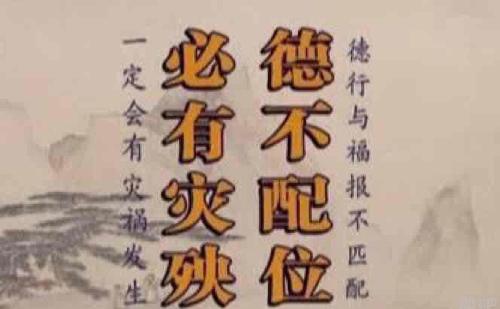 德行与福报不匹配
德不配位
必有灾殃
一定会有灾祸发生